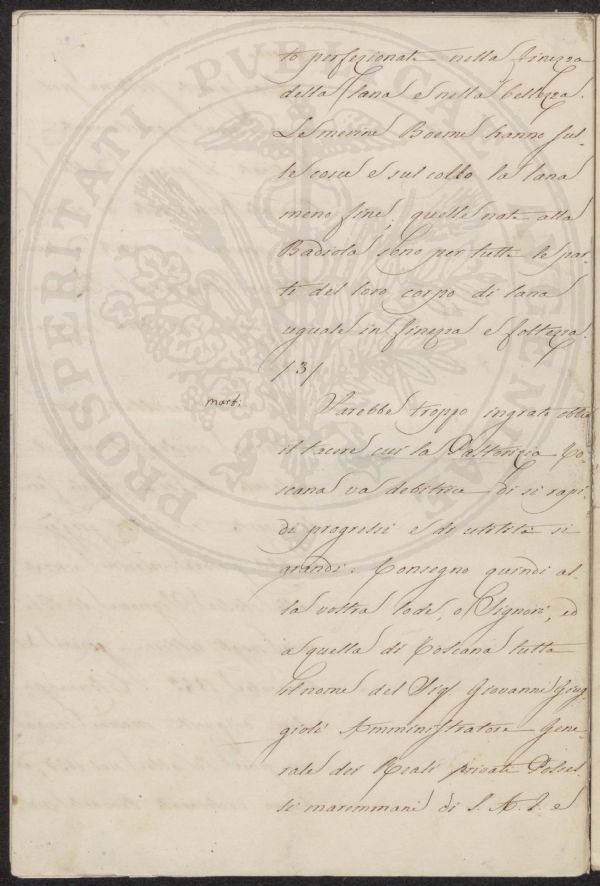 to perfezionate nella finezza
della lana e nella bellezza.
Le merine Boeme hanno sul-
le cosce e sul collo la lana
meno fine, quelle nate alla
Badiola sono per tutte le par-
ti del loro corpo di lana
uguale in finezza e foltezza.
/3/
Sarebbe troppo ingrato oblio
il tacere cui la Pastorizia To-
scana va debitrice di si rapi-
di progressi e di utilità si
grandi: Consegno quindi al-
la vostra lode, o Signori, ed
a quella di Toscana tutta
il nome del Sig. Giovanni Giug-
gioli Amministratore Gene-
rale dei Reali privati Posses-
si maremmani di S. A. I. e
PROSPERITATI PUBLICAE AUGENDAE